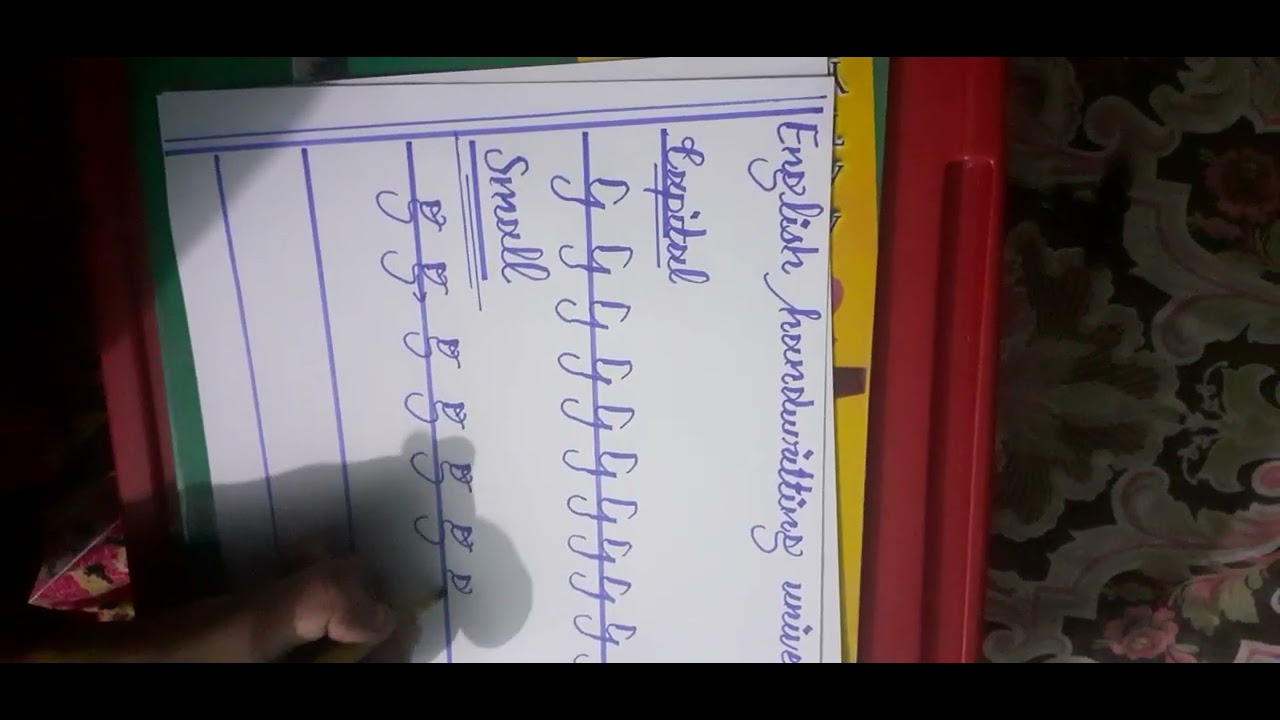 English handwritting unive
Capital
G G G G G G G G G G
Small
g g g g g g